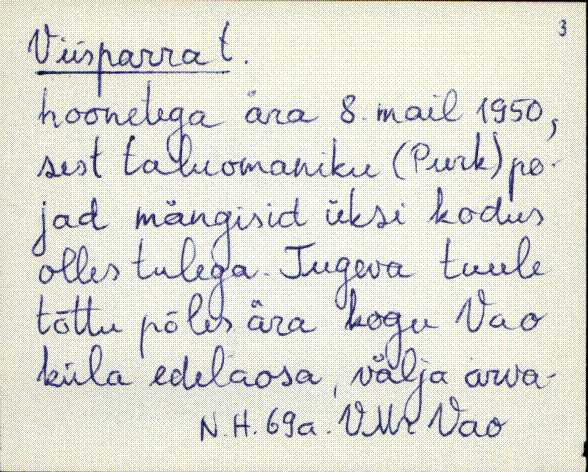 3
Viisparra t.
hoonetega ära 8. mail 1950,
sest taluomaniku (Purk) po-
jad mängisid üksi kodus
olles tulega. Tugeva tuule
tõttu põles ära kogu Vao
küla edelaosa, välja arva-
N.H. 69a. VMr Vao